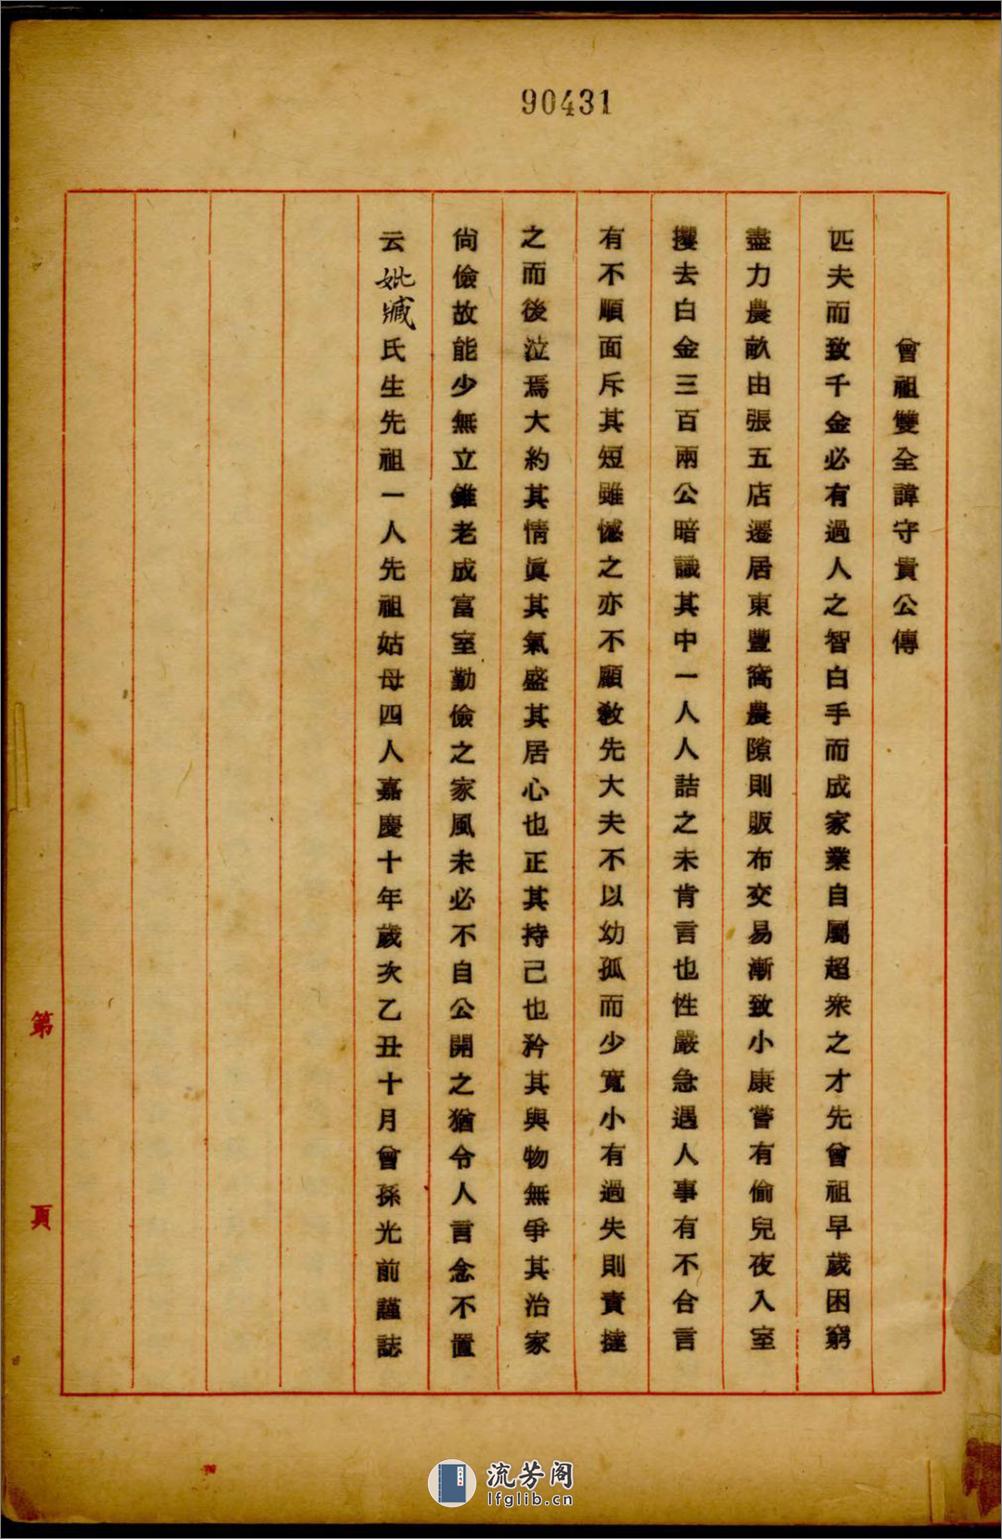 90431
曾祖雙全諱守貴公傳
匹夫而致千金必有過人之智白手而成家業自屬超衆之才先曾祖早歲困窮
盡力農畝由張五店遷居東豐窩農隙則販布交易漸致小康嘗有偷兒夜入室
攫去白金三百兩公暗識其中一人人詰之未肯言也性嚴急遇人事有不合言
有不順面斥其短雖憾之亦不顧敎先大夫不以幼孤而少寬小有過失則責撻
之而後泣焉大約其情眞其氣盛其居心也正其持己也矜其與物無爭其治家
尙儉故能少無立錐老成富室勤儉之家風未必不自公開之猶令人言念不置
云妣臧氏生先祖一人先祖姑母四人嘉慶十年歲次乙丑十月曾孫光前謹誌
第 頁
流芳阁
lfglib.cn